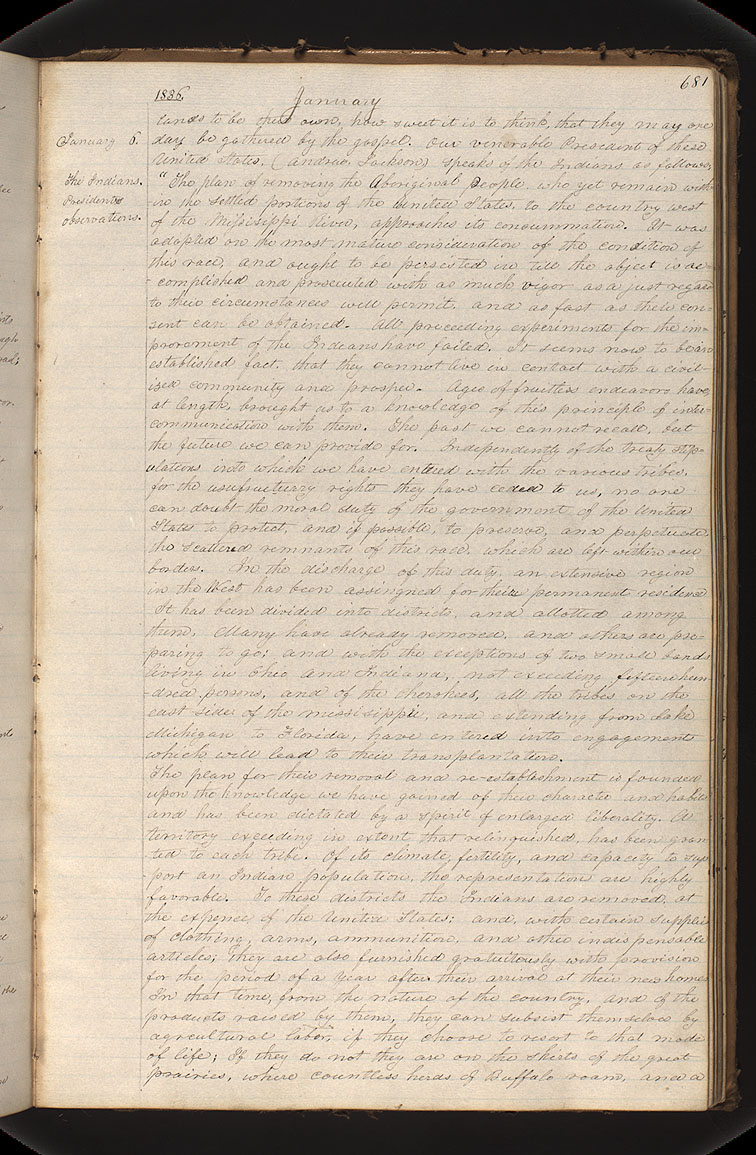 681
1836. January
lands to be their own, how sweet it is to think, that they may one
January 6. day be gathered by the gospel. Our venerable President of these
United States, (Andrew Jackson) speaks of the Indians as follows,
The Indians. "The plan of removing the Aboriginal People, who yet remain with-
Presidents in the settled portions of the United States, to the country west
observations. of the Mississippi River, approaches its consummation. It was
adopted on the most mature consideration of the condition of
this race, and ought to be persisted in till the object is ac-
-complished and prosecuted with as much vigor as a just regard
to their circumstances will permit, and as fast as their con-
sent can be obtained. All preceeding experiments for the im-
provement of the Indians have failed. It seems now to be an
established fact, that they cannot live in contact with a civil-
ized community and prosper. Ages of fruitless endeavors have,
at length, brought us to a knowledge of this principle of inter-
communication with them. The past we cannot recall, but
the future we can provide for. Independently of the treaty stip-
ulations into which we have entered with the various tribes,
for the usufructuary rights they have ceded to us, no one
can doubt the moral duty of the government of the United
States to protect, and if possible, to preserve, and perpetuate,
the scattered remnants of this race, which are left within our
borders. In the discharge of this duty, an extensive region
in the West has been assingned for their permanent residence
It has been divided into districts, and allotted among
them. Many have already removed, and others are pre-
paring to go; and with the exceptions of two small bands
living in Ohio and Indiana, not exceeding fifteen hun-
-dred persons, and of the Cherokees, all the tribes on the
east side of the mississippi, and extending from Lake
Michigan to Florida, have entered into engagements
which will lead to their transplantation.
The plan for their removal and re-establishment is founded
upon the knowledge we have gained of their character and habits
and has been dictated by a spirit of enlarged liberality. A
territory exceeding in extent that relinquished, has been gran-
ted to each tribe. Of its climate, fertility, and capacity to sup-
-port an Indian population, the representation are highly
favorable. To these districts the Indians are removed at
the expence, of the United States; and, with certain supplies
of clothing, arms, ammunition, and other indispensable
articles; they are also furnished gratuitously with provision
for the period of a year after their arrival at their new homes
In that time, from the nature of the country, and of the
products raised by them, they can subsist themselves by
agricultural labor, if they choose to resort to that mode
of life; If they do not they are on the skirts of the great
prairies, where countless herds of Buffalo roam, and a